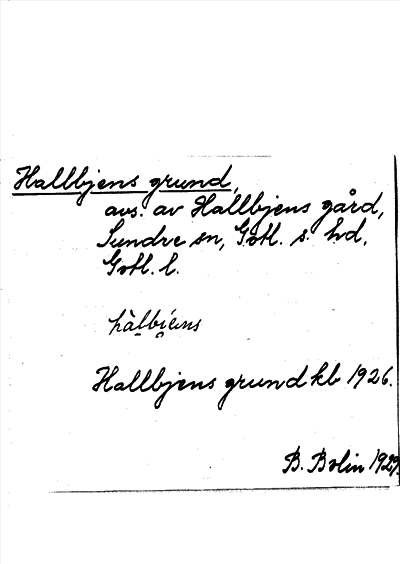 Hallbjens grund,
avs. av Hallbjens gård,
Sundre sn, Gotl. s. hd,
Gotl. l.
Hallbjens grund kb 1926.
B. Bolin 1929.